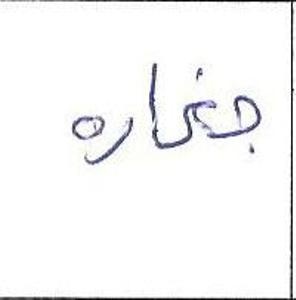 جغاره